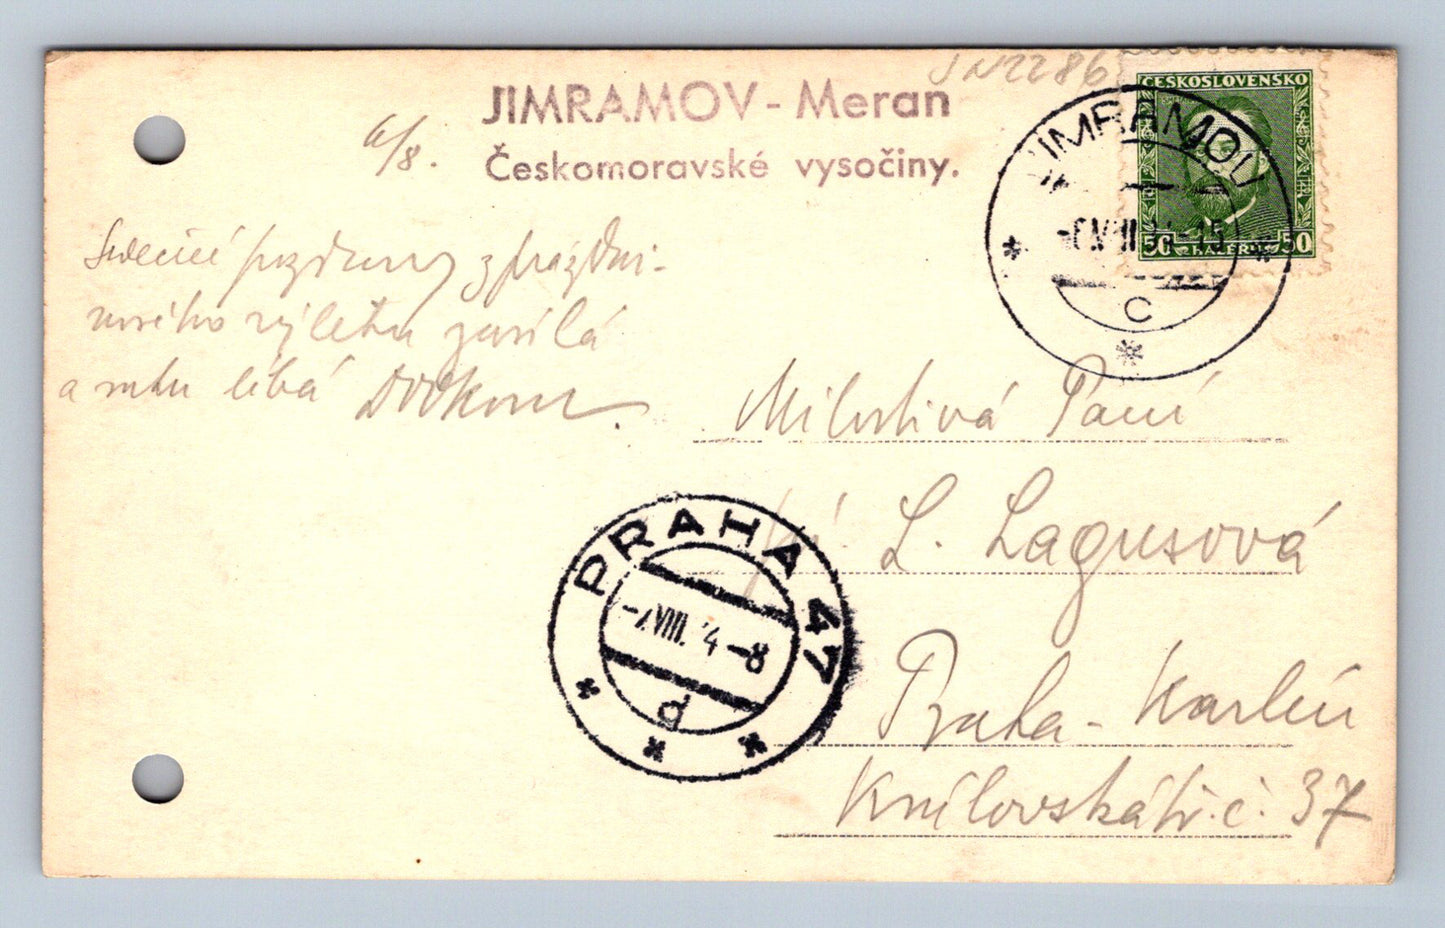 JN2286
JIMRAMOV - Meran
Českomoravské vysočiny.
6/8.
ČESKOSLOVENSKO
50 HALÉŘŮ 50
JIMRAMOV
-6.VIII.34-15
C
Srdečné pozdravy z prázdni-
nového výletu zasílá
a ruku líbá
Milostivá Paní
Pí. L. Lagusová
Praha - Karlín
Královská tř. č. 37
PRAHA 47
-7.VIII. 4-8
p